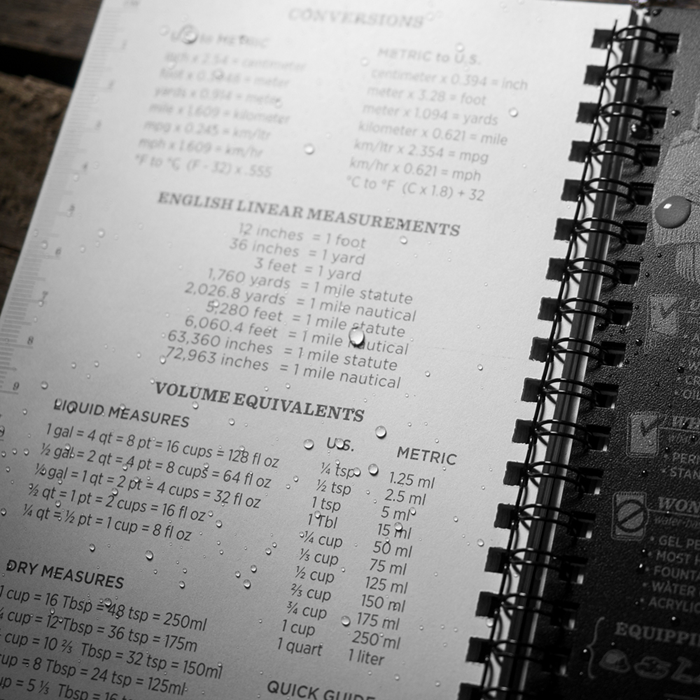 CONVERSIONS
U.S. to METRIC
inch x 2.54 = centimeter
foot x 0.3048 = meter
yards x 0.914 = meter
mile x 1.609 = kilometer
mpg x 0.245 = km/ltr
mph x 1.609 = km/hr
°F to °C (F - 32) x .555
METRIC to U.S.
centimeter x 0.394 = inch
meter x 3.28 = foot
meter x 1.094 = yards
kilometer x 0.621 = mile
km/ltr x 2.354 = mpg
km/hr x 0.621 = mph
°C to °F (C x 1.8) + 32
ENGLISH LINEAR MEASUREMENTS
12 inches = 1 foot
36 inches = 1 yard
3 feet = 1 yard
1,760 yards = 1 mile statute
2,026.8 yards = 1 mile nautical
5,280 feet = 1 mile statute
6,060.4 feet = 1 mile nautical
63,360 inches = 1 mile statute
72,963 inches = 1 mile nautical
VOLUME EQUIVALENTS
LIQUID MEASURES
1 gal = 4 qt = 8 pt = 16 cups = 128 fl oz
½ gal = 2 qt = 4 pt = 8 cups = 64 fl oz
¼ gal = 1 qt = 2 pt = 4 cups = 32 fl oz
½ qt = 1 pt = 2 cups = 16 fl oz
¼ qt = ½ pt = 1 cup = 8 fl oz
U.S. METRIC
¼ tsp 1.25 ml
½ tsp 2.5 ml
1 tsp 5 ml
1 Tbl 15 ml
¼ cup 50 ml
⅓ cup 75 ml
½ cup 125 ml
⅔ cup 150 ml
¾ cup 175 ml
1 cup 250 ml
1 quart 1 liter
DRY MEASURES
1 cup = 16 Tbsp = 48 tsp = 250ml
cup = 12 Tbsp = 36 tsp = 175m
cup = 10 ⅔ Tbsp = 32 tsp = 150ml
cup = 8 Tbsp = 24 tsp = 125ml
cup = 5 ⅓ Tbsp = 16
QUICK GUIDE
• PERI
• STA
WON
water-
• GEL PE
• MOST H
• FOUNT
• WATER
• ACRYL
EQUIPP